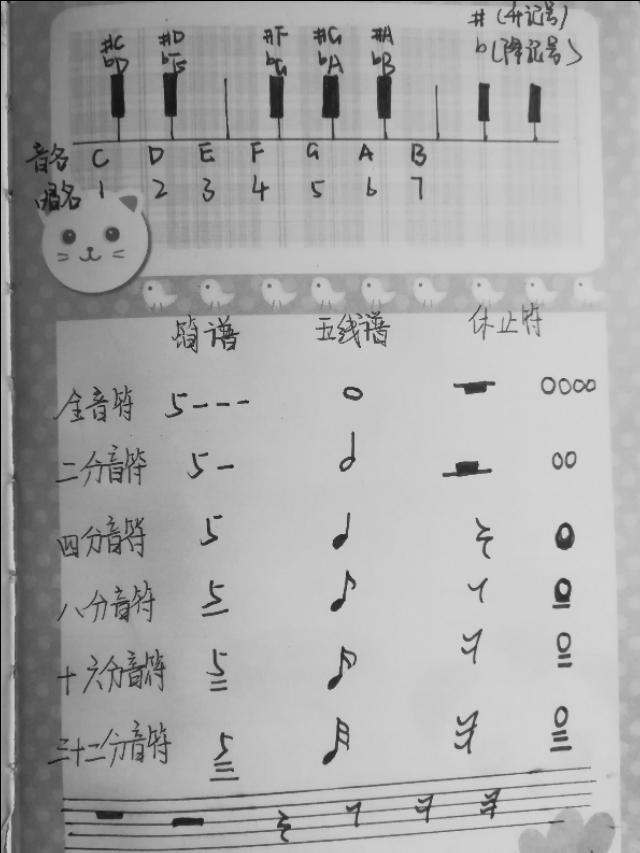 #C #D #F #G #A #(升记号)
bD bE bG bA bB b(降记号)
音名 C D E F G A B
唱名 1 2 3 4 5 6 7
简谱 五线谱 休止符
全音符 5--- 0000
二分音符 5- 00
四分音符 5 0
八分音符 5 0
十六分音符 5 0
三十二分音符 5 0